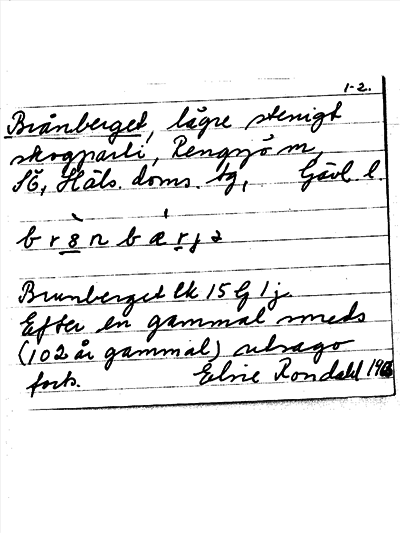 1-2.
Brånberget, lägre stenigt
skogparti, Rengsjö m,
SÖ, Häls. doms. tg, Gävl. l.
Brunberget Ek 15 G 1 j.
Efter en gammal smeds
(102 år gammal) utsago
forts. Elsie Rondahl